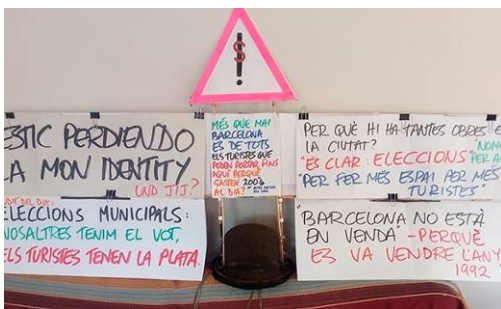 S
ESTIC PERDIENDO
LA MON IDENTITY
UND TÚ?
MÉS QUE MAI
BARCELONA
ES DE TOTS
ELS TURISTES QUE
PODEN PORTAR FINS
AQUÍ PERQUÈ
GASTEN 200€
AL DIA?
PER QUÈ HI HA TANTES OBRES
LA CIUTAT?
"ÉS CLAR: ELECCIONS"
"PER FER MÉS ESPAI PER MÉS
TURISTES"
DEL DIA:
ELECCIONS MUNICIPALS:
NOSALTRES TENIM EL VOT,
ELS TURISTES TENEN LA PLATA.
"BARCELONA NO ESTÀ
EN VENDA" - PERQUÈ
ES VA VENDRE L'ANY
1992